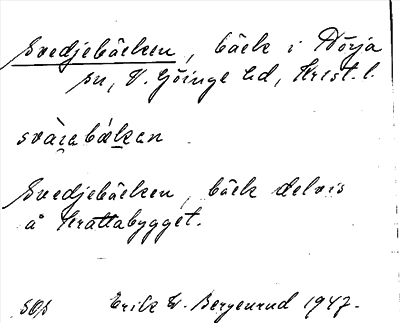 Svedjebäcken, bäck i Nörja
sn, V. Göinge hd, Krist. l.
svàiabækan
Svedjebäcken, bäck delvis
å Krattabygget.
Erik W. Bergenrud 1947.